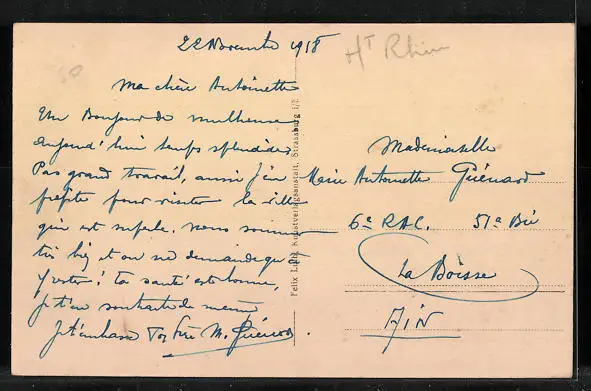 22 Novembre 1918
Ht Rhin
50
Ma chère Antoinette
Un Bonjour de Mulhouse
Aujourd'hui temps splendide
Pas grand travail, aussi j'en
profite pour visiter la ville
qui est superbe. Nous sommes
très bien et on ne demande qu'à
rester! Ta santé est bonne,
je t'en souhaite de même
Je t'embrasse Ton frère M. Guénard.
Felix Luib, Kunstverlagsanstalt, Strassburg i/E.
Mademoiselle
Marie Antoinette Guénard
6e RAC. 51e Bie
La Boisse
AIN